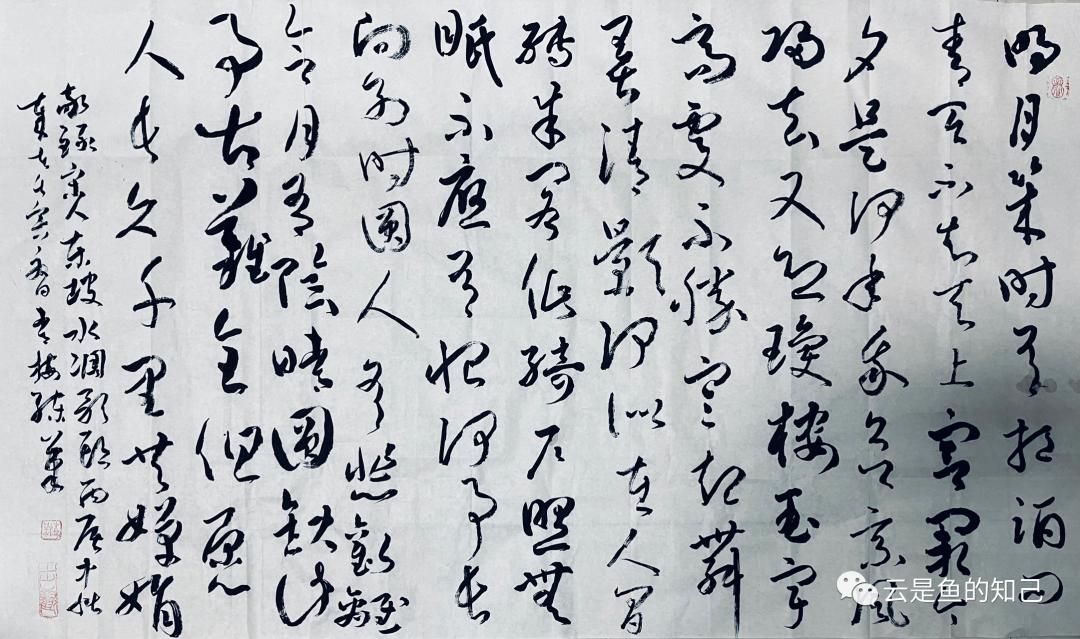 明月幾时有把酒问
青天不知天上宫阙今
夕是何年我欲乘风
归去又恐瓊樓玉宇
高處不勝寒起舞
弄清影何似在人间
转朱阁低绮户照無
眠不應有恨何事长
向别时圆人有悲歡離
合月有陰晴圆缺此
事古難全但愿
人长久千里共嬋娟
敬録宋人东坡水调歌頭丙辰中秋
云是鱼的知己